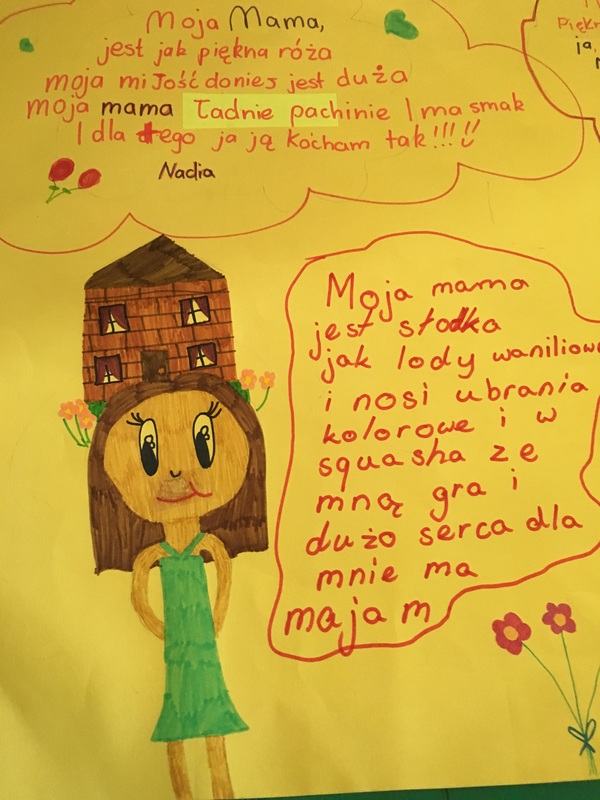 Moja Mama,
jest jak piękna róża
moja miłość doniej jest duża
moja mama ładnie pachinie I ma smak
I dla tego ja ją kocham tak!!!
Nadia
ja,
Moja mama
jest słodka
jak lody waniliowe
i nosi ubrania
kolorowe i w
squasha ze
mną gra i
dużo serca dla
mnie ma
maja m